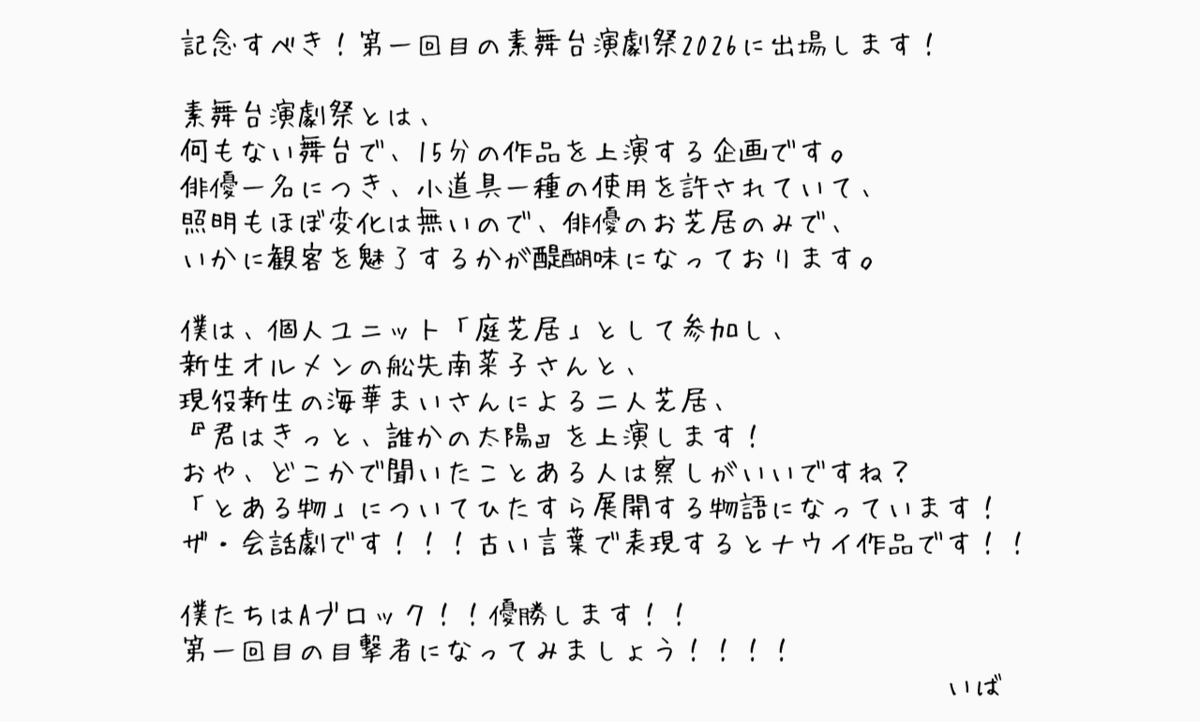 記念すべき！第一回目の素舞台演劇祭2026に出場します！
素舞台演劇祭とは、
何もない舞台で、15分の作品を上演する企画です。
俳優一名につき、小道具一種の使用を許されていて、
照明もほぼ変化は無いので、俳優のお芝居のみで、
いかに観客を魅了するかが醍醐味になっております。
僕は、個人ユニット「庭芝居」として参加し、
新生オルメンの舩先南菜子さんと、
現役新生の海華まいさんによる二人芝居、
『君はきっと、誰かの太陽』を上演します！
おや、どこかで聞いたことある人は察しがいいですね？
「とある物」についてひたすら展開する物語になっています！
ザ・会話劇です！！！古い言葉で表現するとナウイ作品です！！
僕たちはAブロック！！優勝します！！
第一回目の目撃者になってみましょう！！！！
いば